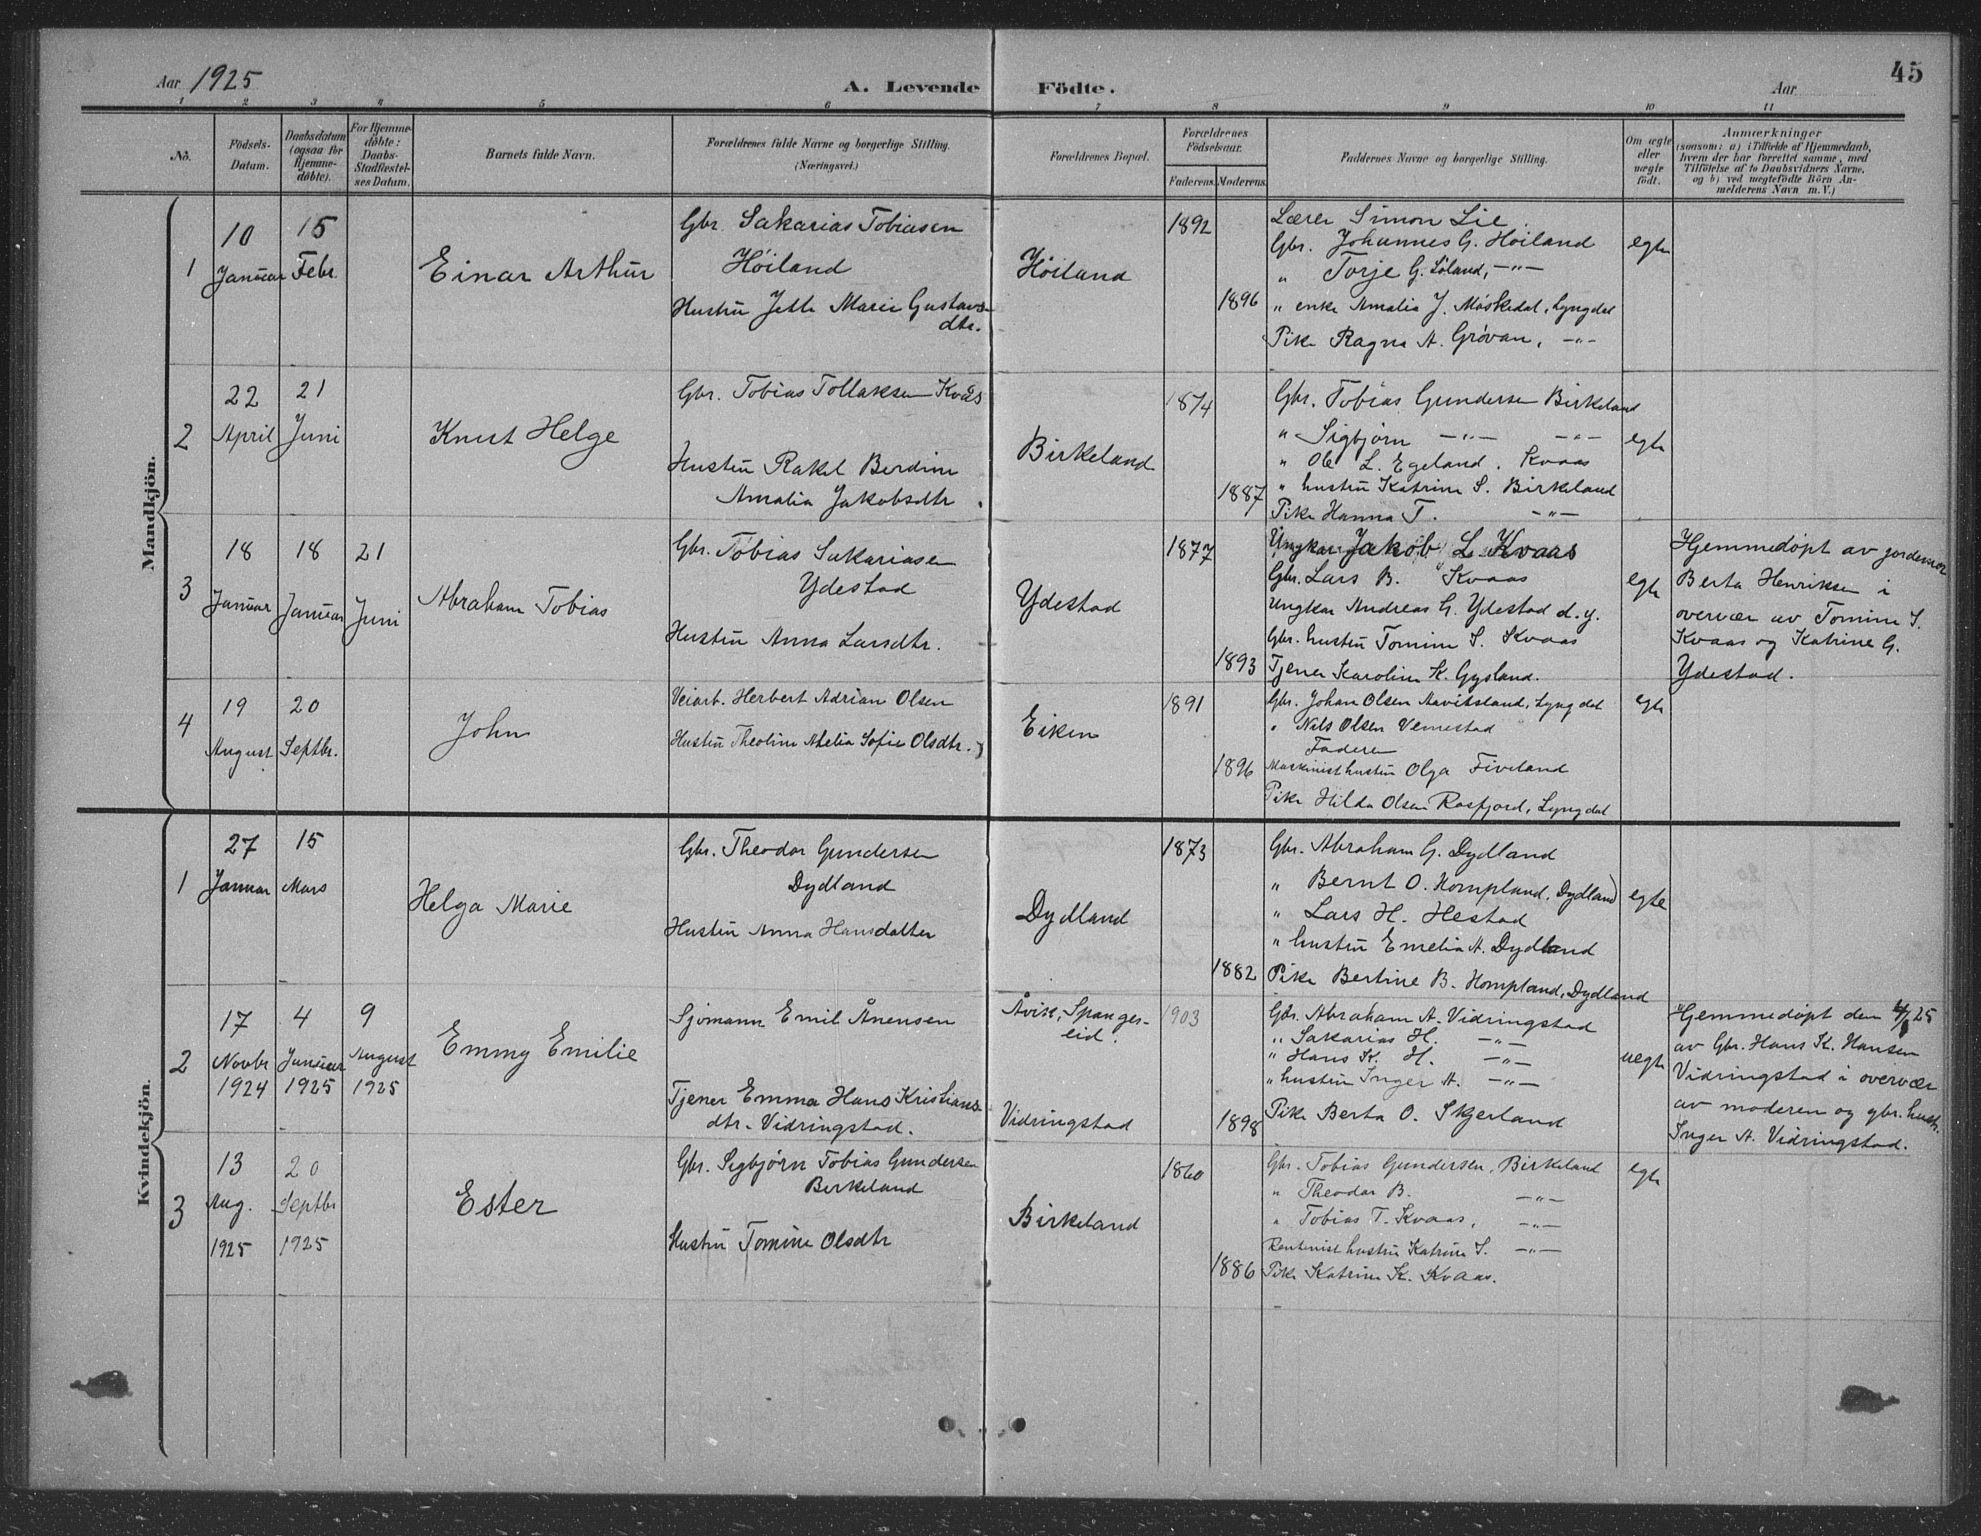 Aar 1925
A. Levende Födte.
Aar
45
1 2 3 4 5 6 7 8 9 10 11
No.
Födsels-Datum.
Daabsdatum (ogsaa for Hjemme-döbte).
For Hjemme-döbte: Daabs-Stadfæstel-ses Datum.
Barnets fulde Navn.
Forældrenes fulde Navne og borgerlige Stilling.
(Næringsvei.)
Forældrenes Bopæl.
Forældrenes Födselsaar.
Faderens. Moderens.
Faddernes Navne og borgerlige Stilling.
Om ægte eller uægte födt.
Anmærkninger
(saasom: a) i Tilfælde af Hjemmedaab,
hvem der har forrettet samme, med
Tilföielse af to Daabsvidners Navne.
og b) ved uægtefödte Börn An-
melderens Navn m. V.)
Mandkjön.
1
10 Januar
15 Febr.
Einar Arthur
Gbr. Sakarias Tobiasen
Høiland
Hustru Jette Marie Gustavs-
dtr.
Høiland
1892
1896
Lærer Simon Lie.
Gbr. Johannes G. Høiland
" Torje G. Løland, -"-
" enke Amalia J. Møskedal, Lyngdal
Pike Ragna A. Grøvan, -"-
egte
2
22 April
21 Juni
Knut Helge
Gbr. Tobias Tollaksen Kvaas
Hustru Rakel Berdine
Amalia Jakobsdtr.
Birkeland
1874
1887
Gbr. Tobias Gundersen Birkeland
" Sigbjørn -"- -"-
" Ole L. Egeland, Kvaas
" hustru Katrine S. Birkeland
Pike Hanna T. -"-
egte
3
18 Januar
18 Januar
21 Juni
Abraham Tobias
Gbr. Tobias Sakariasen
Ydestad
Hustru Anna Larsdtr.
Ydestad
1877
1893
Ungkar Jakob L. Kvaas
Gbr. Lars B. Kvaas
Ungkar Andreas G. Ydestad d.y.
Gbr. hustru Tomine S. Kvaas
Tjener Karoline K. Gysland.
egte
Hjemmedøpt av jordemor
Berta Henriksen i
overvær av Tomine S.
Kvaas og Katrine G.
Ydestad.
4
19 August
20 Septbr.
John
Veiarb. Herbert Adrian Olsen
Hustru Theoline Athelia Sofie Olsdtr.
Eiken
1891
1896
Gbr. Johan Olsen Aavitsland, Lyngdal
" Nils Olsen Vemestad
Faderen
Maskinisthustru Olga Fiveland
Pike Hilda Olsen Rosfjord, Lyngdal
egte
Kvindekjön.
1
27 Januar
15 Mars
Helga Marie
Gbr. Theodor Gundersen
Dydland
Hustru Anna Hansdatter
Dydland
1873
1882
Gbr. Abraham G. Dydland
" Bernt O. Hompland, Dydland
" Lars H. Hestad
" hustru Emelia A. Dydland
Pike Bertine B. Hompland, Dydland
egte
2
17 Novbr 1924
4 Januar 1925
9 August 1925
Emmy Emilie
Sjømann Emil Ånensen
Tjener Emma Hans Kristians-
dtr. Vidringstad.
Åvik, Spanger-
eid.
Vidringstad
1903
1898
Gbr. Abraham A. Vidringstad
" Sakarias H. -"-
" Hans K. H. -"-
" hustru Inger A. -"-
Pike Berta O. Skjerland
uegte
Hjemmedøpt den 4/1 25
av Gbr. Hans K. Hansen
Vidringstad i overvær
av moderen og gbr. hustr.
Inger A. Vidringstad.
3
13 Aug. 1925
20 Septbr 1925
Ester
Gbr. Sigbjørn Tobias Gundersen
Birkeland
Hustru Tomine Olsdtr
Birkeland
1860
1886
Gbr. Tobias Gundersen, Birkeland
" Theodor B. -"-
" Tobias T. Kvaas, -"-
Rentenist hustru Katrine S. -"-
Pike Katrine K. Kvaas.
egte